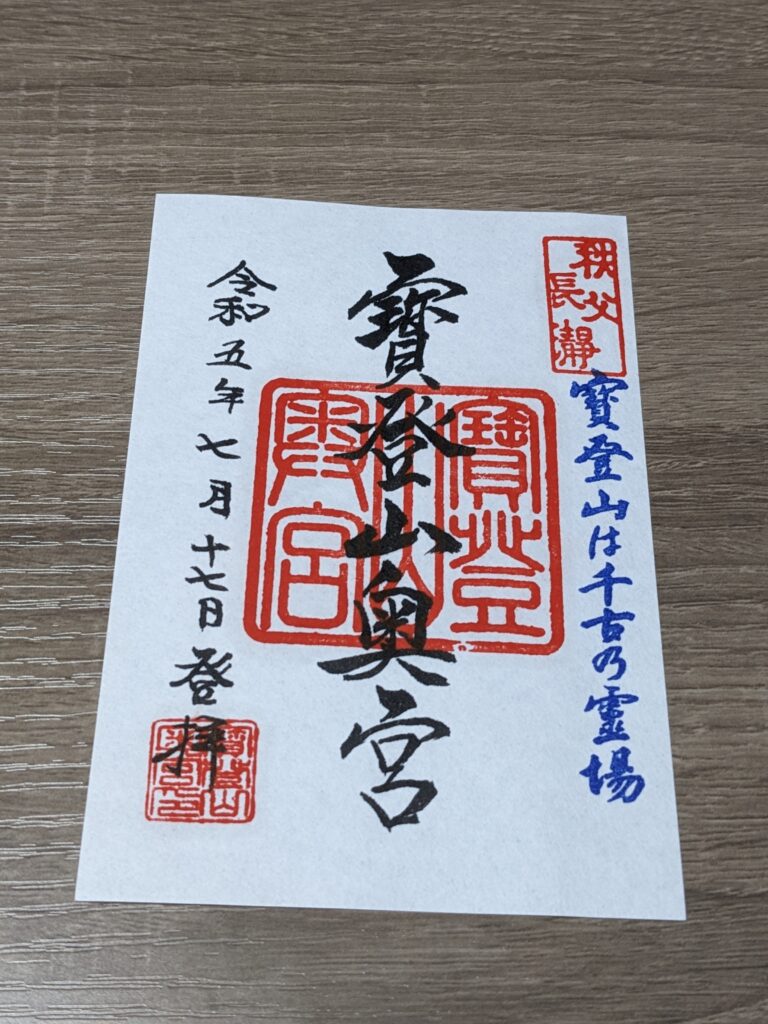 秩父
長瀞
寶登山は千古乃霊場
寶登山奥宮
寶登山奥宮
令和五年七月十七日登拝